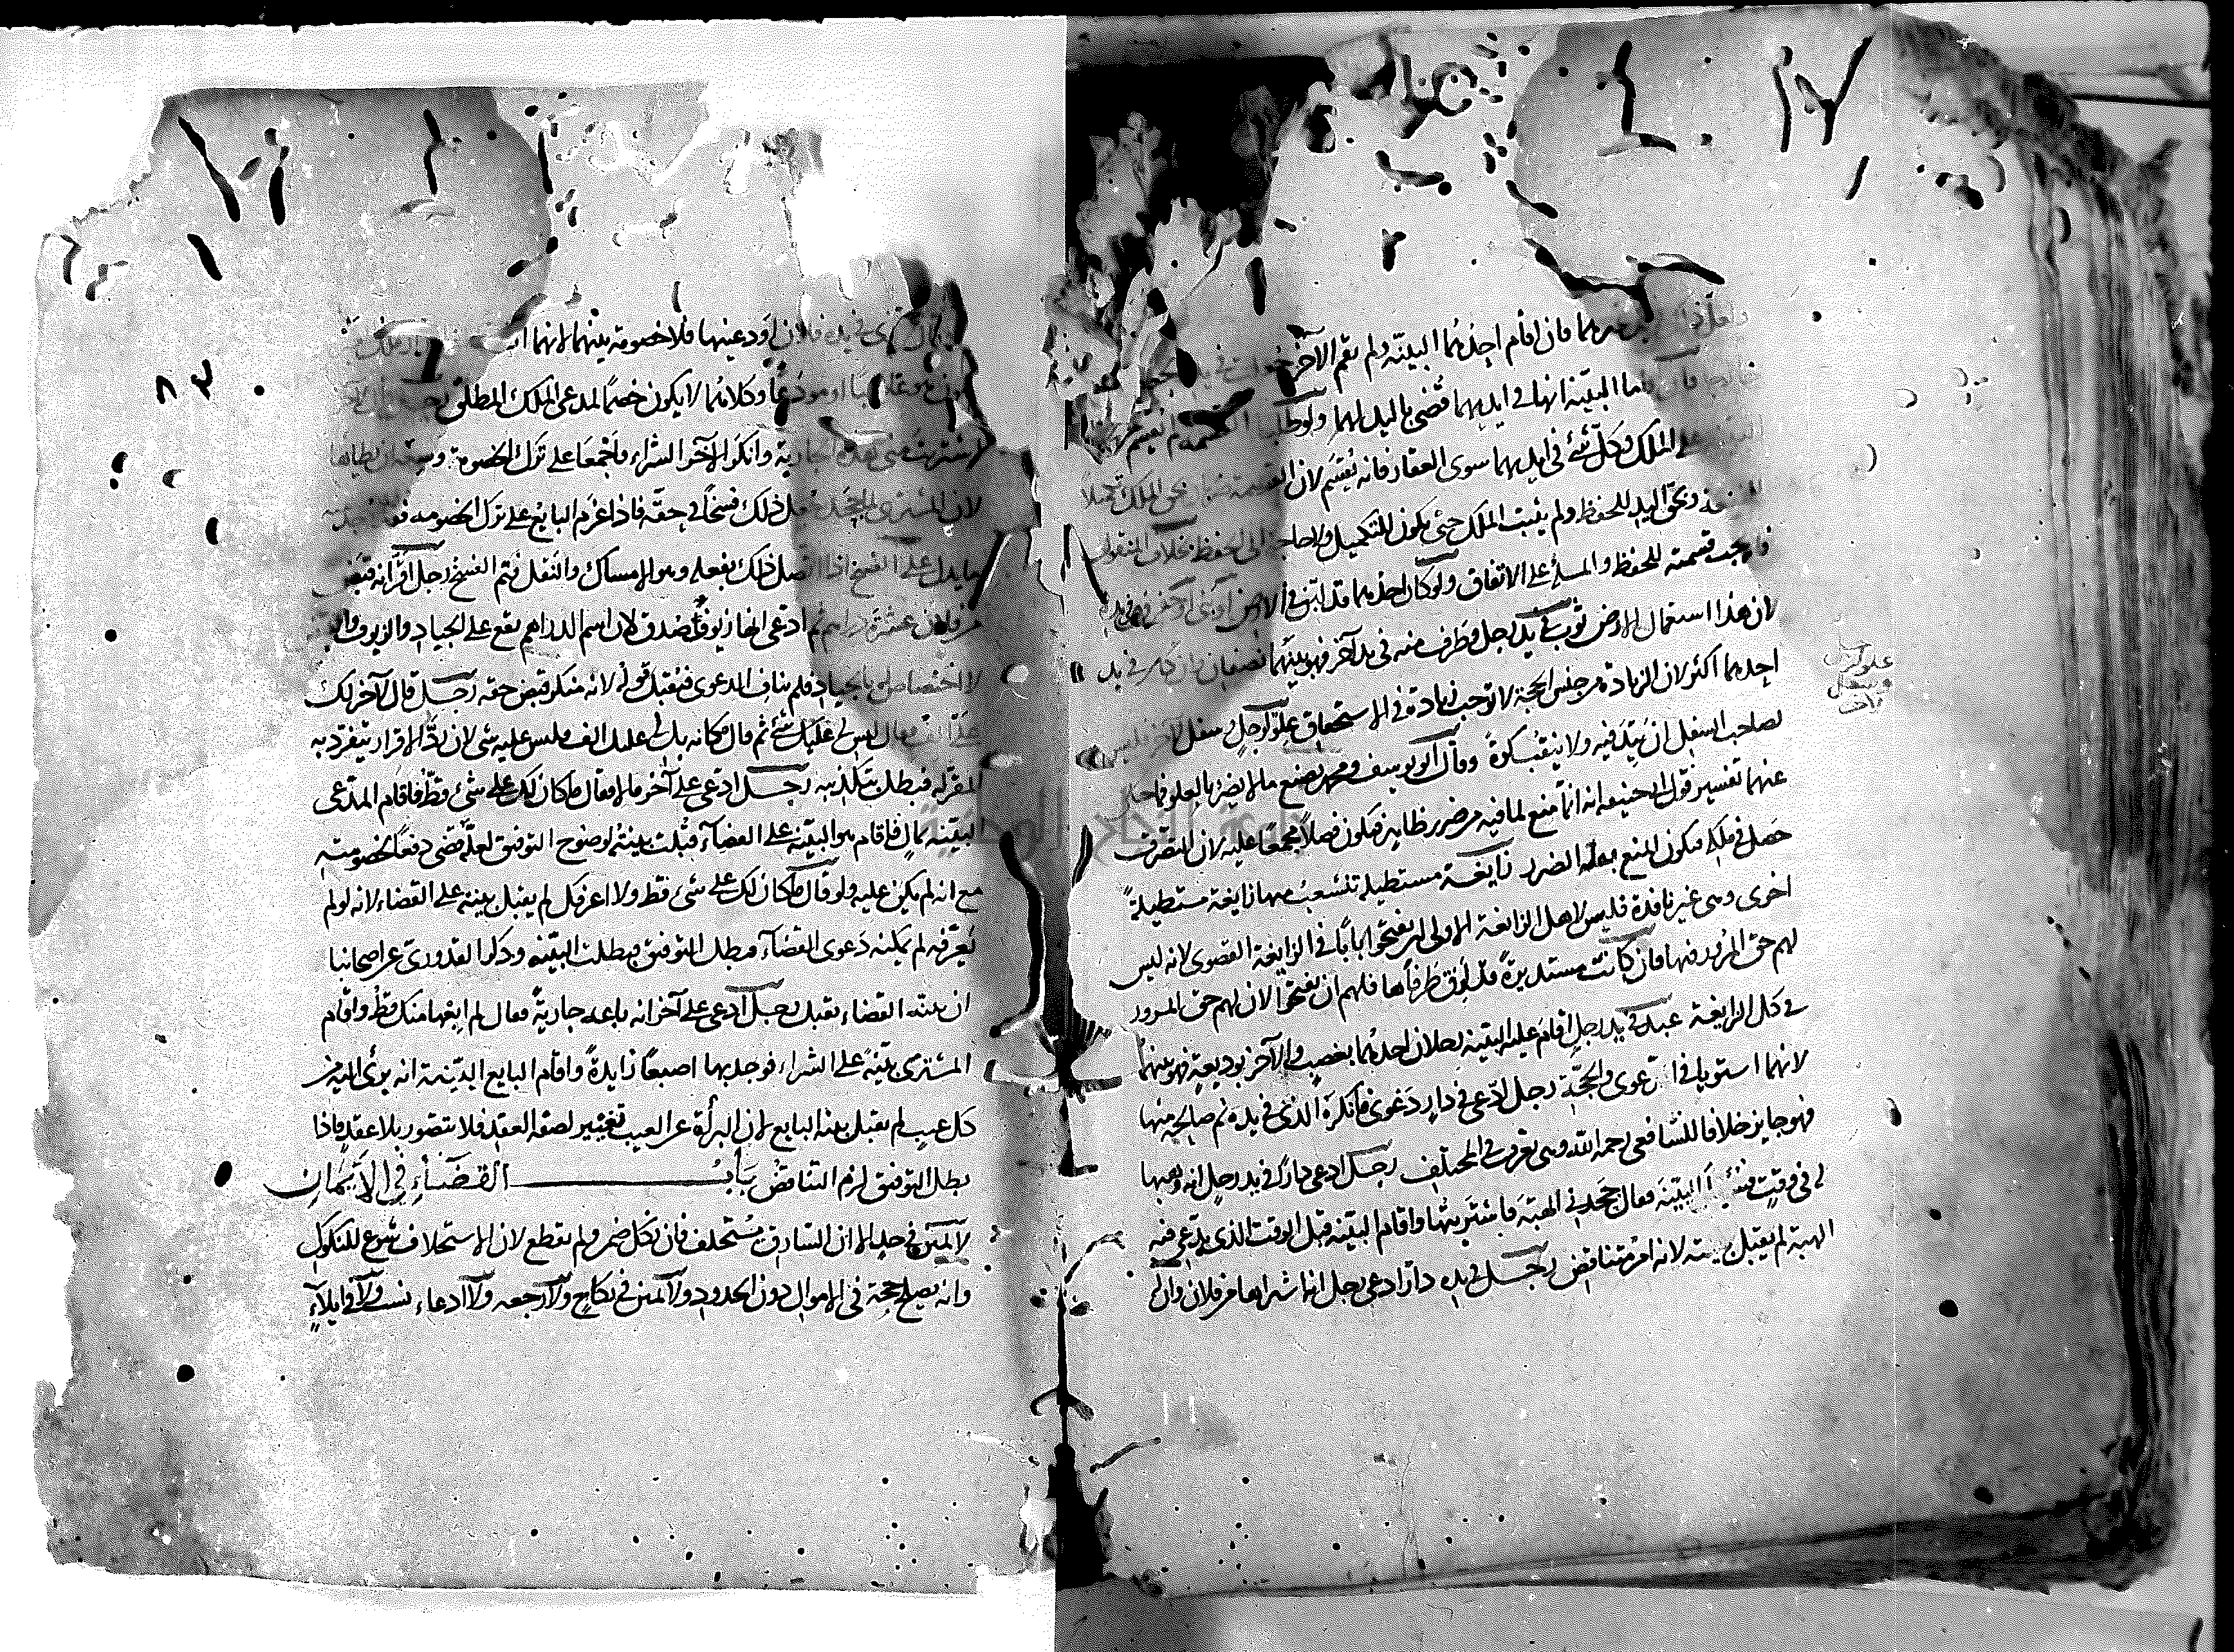 فان اقام احدهما البينة ولم يقم الآخر
البينة انها في ايديهما قضى باليد لهما ولو طلبا القسمة لم تقسم
الملك وكل شئ في ايديهما سوى العقار فانه يقسم لان القسمة بحق الملك تكميلا
وبحق اليد للحفظ ولم يثبت الملك حتى يكون للتكميل ولا حاجة الى الحفظ بخلاف المنقول
قسمته للحفظ والمسئلة على الاتفاق ولو كان احدهما قد لبّن في الارض او بنى او حفر فهي في يده
لان هذا استعمال للارض ثوب في يد رجل وطرف منه في يد آخر فهو بينهما نصفان وان كان في يد
احدهما اكثر لان الزيادة من جنس الحجة لا توجب زيادة في الاستحقاق علو لرجل سفل لآخر فليس
لصاحب السفل ان يتد فيه ولا ينقب كوة وقال ابو يوسف ومحمد يصنع ما لا يضر بالعلو
عنهما تفسير قول ابي حنيفة انه انما منع لما فيه من ضرر ظاهر فيكون فصلا مجمعا عليه لان التصرف
حصل في ملكه فيكون المنع بعلة الضرر زايغة مستطيلة تنشعب منها زايغة مستطيلة
اخرى وهي غير نافذة فليس لاهل الزايغة الاولى ان يفتحوا بابا في الزايغة القصوى لانه ليس
لهم حق المرور فيها فان كانت مستديرة قد لزق طرفاها فلهم ان يفتحوا لان لهم حق المرور
في كل الزايغة عبد في يد رجل اقام عليه البينة رجلان احدهما بغصب والآخر بوديعة فهو بينهما
لانهما استويا في الدعوى والحجة رجل ادعى في دار دعوى فانكره الذي في يده ثم صالحه منها
فهو جايز خلافا للشافعي رحمه الله وهي تعرف في المختلف رجل ادعى دارا في يد رجل انه وهبها
له في وقت البينة فقال جحدني الهبة فاشتريتها واقام البينة قبل الوقت الذي يدعى فيه
الهبة لم يقبل بينته لانه امر متناقض رجل في يده دار ادعى رجل انه اشتراها من فلان وان
في يده فلان اودعنيها فلا خصومة بينهما لانهما
او مودعا وكلاهما لا يكون خصما لمدعي الملك المطلق
اشتريت مني هذه الجارية وانكر الآخر الشراء فاجمعا على ترك الخصومة وسعه ان يطأها
لان المشتري لما جحده جعل ذلك فسخا في حقه فاذا عزم البايع على ترك الخصومة فقد
ما يدل على الفسخ اذا اتصل ذلك بفعله وهو الامساك والنقل فتم الفسخ رجل اقر انه قبض
من فلان عشرة دراهم ثم ادعى انها زيوف صدق لان اسم الدراهم يقع على الجياد والزيوف
لا اختصاص له بالجياد فلم يناف الدعوى فيقبل قوله لانه منكر قبض حقه رجل قال لآخر لك
علي الف فقال ليس لي عليك شئ ثم قال مكانه بل لي عليك الف فليس عليه شئ لان رد الاقرار يتفرد به
المقر له فبطل بتكذيبه رجل ادعى على آخر مالا فقال ما كان لك علي شئ قط فاقام المدعي
البينة بمال فاقام هو البينة على القضاء قبلت بينته لوضوح التوفيق لعله قضى دفعا لخصومته
مع انه لم يكن عليه ولو قال ما كان لك علي شئ قط ولا اعرفك لم يقبل بينته على القضاء لانه لو لم
يعرفه لم يمكنه دعوى القضاء فبطل التوفيق فبطلت البينة وذكر القدوري عن اصحابنا
ان بينة القضاء تقبل رجل ادعى على آخر انه باعه جارية فقال لم ابعها منك قط واقام
المشتري بينة على الشراء فوجد بها اصبعا زايدة واقام البايع البينة انه برئ اليه من
كل عيب لم يقبل بينة البايع لان البرأة عن العيب تغيير لصفة العقد فلا يتصور بلا عقد فاذا
بطل التوفيق لزم التناقض باب القضاء في الايمان
لا يمين في حد الا ان السارق يستحلف فان نكل ضمن ولم يقطع لان الاستحلاف شرع للنكول
وانه يصلح حجة في الاموال دون الحدود ولا يمين في نكاح ولا رجعة ولا ادعاء نسب ولا في ايلاء